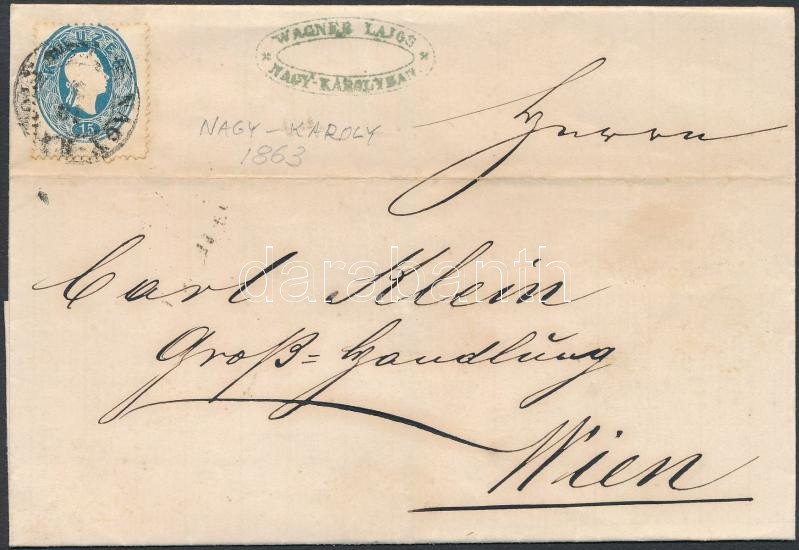 KREUZER
15
WAGNER LAJOS
NAGY-KÁROLYBAN
NAGY-KAROLY
1863
Herrn
darabanth
Carl Klein
Groß=Handlung
Wien